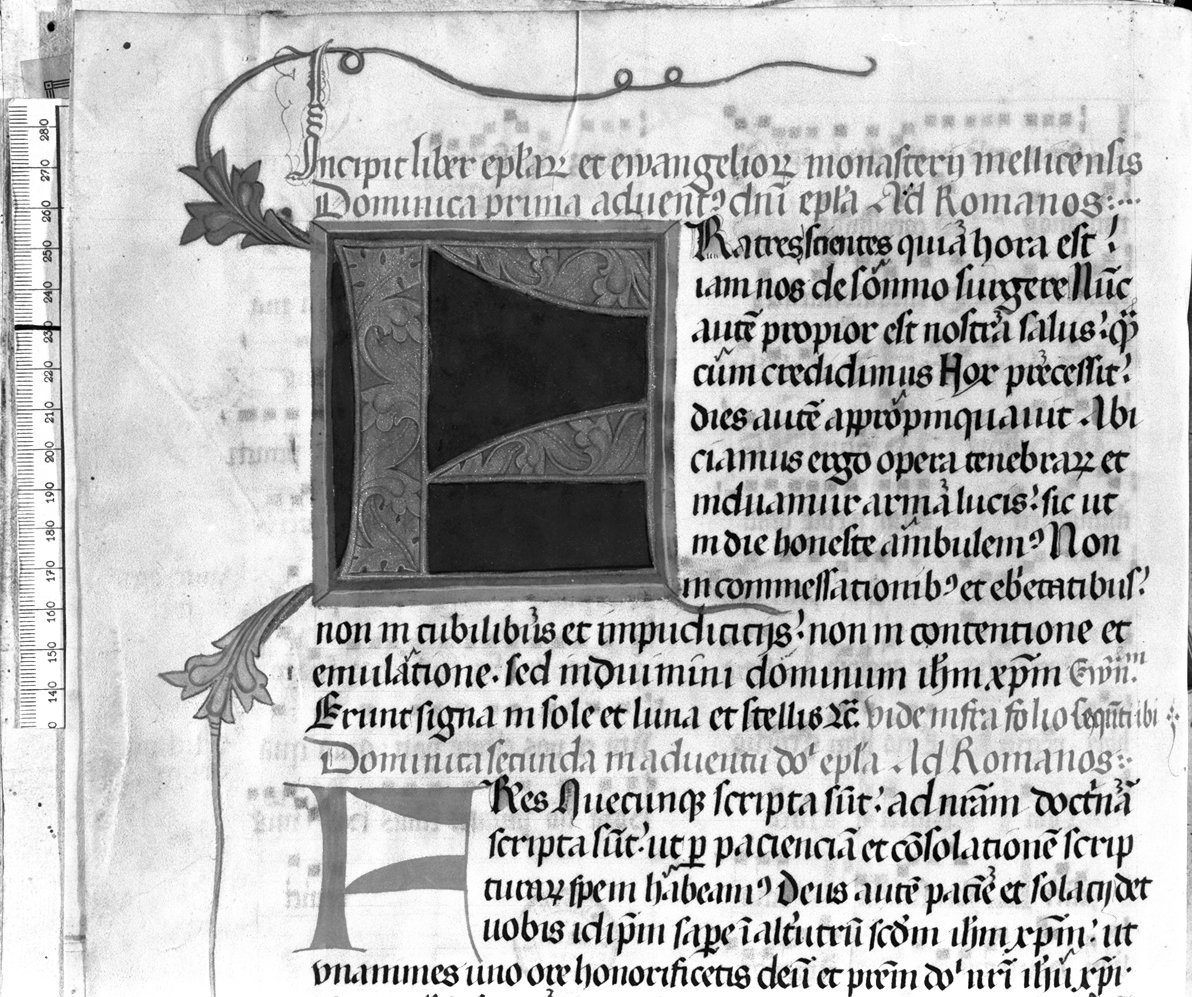 Incipit liber eplarꝝ et ewangeliorꝝ monasterij mellicensis
Dominica prima aduentꝰ dni epla Ad Romanos:
F Ratres scientes quia hora est
iam nos de sompno surgere Nūc
autē propior est nostra salus: qͣ
cum credidimus Nox precessit:
dies autē appropinquauit Abi
ciamus ergo opera tenebrarꝝ et
induamur arma lucis: sic ut
in die honeste ambulemꝰ Non
in commessationibꝰ et ebrietatibus:
non in cubilibus et impudicitijs: non in contentione et
emulatione. sed induimini dominum ihm xpm Ewm
Erunt signa in sole et luna et stellis ⁊c̄ vide infra folio sequēti ibi
Dominica secunda in aduentu do epla Ad Romanos:
F Res Quecunqꝫ scripta sūt: ad nram doctrinā
scripta sūt: ut ꝑ pacienciā et cōsolationē scrip
turarꝝ spem habeamꝰ Deus autē paciē et solacij det
uobis idipm sapere ī alterutrū scdm ihm xpm: ut
vnanimes uno ore honorificetis deū et prem do nri ihu xpi.
280
270
260
250
240
230
220
210
200
190
180
170
160
150
140
0